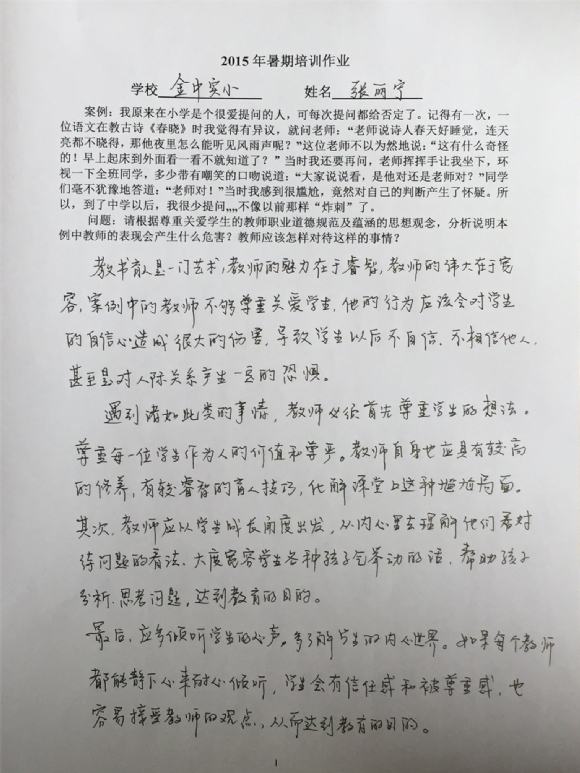 2015 年暑期培训作业
学校 金中实小 姓名 张丽宁
案例：我原来在小学是个很爱提问的人，可每次提问都给否定了。记得有一次，一
位语文在教古诗《春晓》时我觉得有异议，就问老师：“老师说诗人春天好睡觉，连天
亮都不晓得，那他夜里怎么能听见风雨声呢？”这位老师不以为然地说：“这有什么奇怪
的！早上起床到外面看一看不就知道了？”当时我还要再问，老师挥挥手让我坐下，环
视一下全班同学，多少带有嘲笑的口吻说道：“大家说说看，是他对还是老师对？”同学
们毫不犹豫地答道：“老师对！”当时我感到很尴尬，竟然对自己的判断产生了怀疑。所
以，到了中学以后，我很少提问„„不像以前那样“炸刺”了。
问题：请根据尊重关爱学生的教师职业道德规范及蕴涵的思想观念，分析说明本
例中教师的表现会产生什么危害？教师应该怎样对待这样的事情？
教书育人是一门艺术，教师的魅力在于睿智，教师的伟大在于宽
容，案例中的教师不够尊重关爱学生，他的行为应该会对学生
的自信心造成很大的伤害，导致学生以后不自信、不相信他人，
甚至是对人际关系产生一定的恐惧。
遇到诸如此类的事情，教师必须首先尊重学生的想法。
尊重每一位学生作为人的价值和尊严。教师自身也应具有较高
的修养，有较睿智的育人技巧，化解课堂上这种尴尬局面。
其次，教师应以学生成长角度出发，从内心里去理解他们看对
待问题的看法、大度宽容学生各种孩子气举动的话，帮助孩子
分析、思考问题，达到教育的目的。
最后，应多倾听学生的心声。多了解学生的内心世界。如果每个教师
都能静下心来耐心倾听，学生会有信任感和被尊重感，也
容易接受教师的观点，从而达到教育的目的。
1